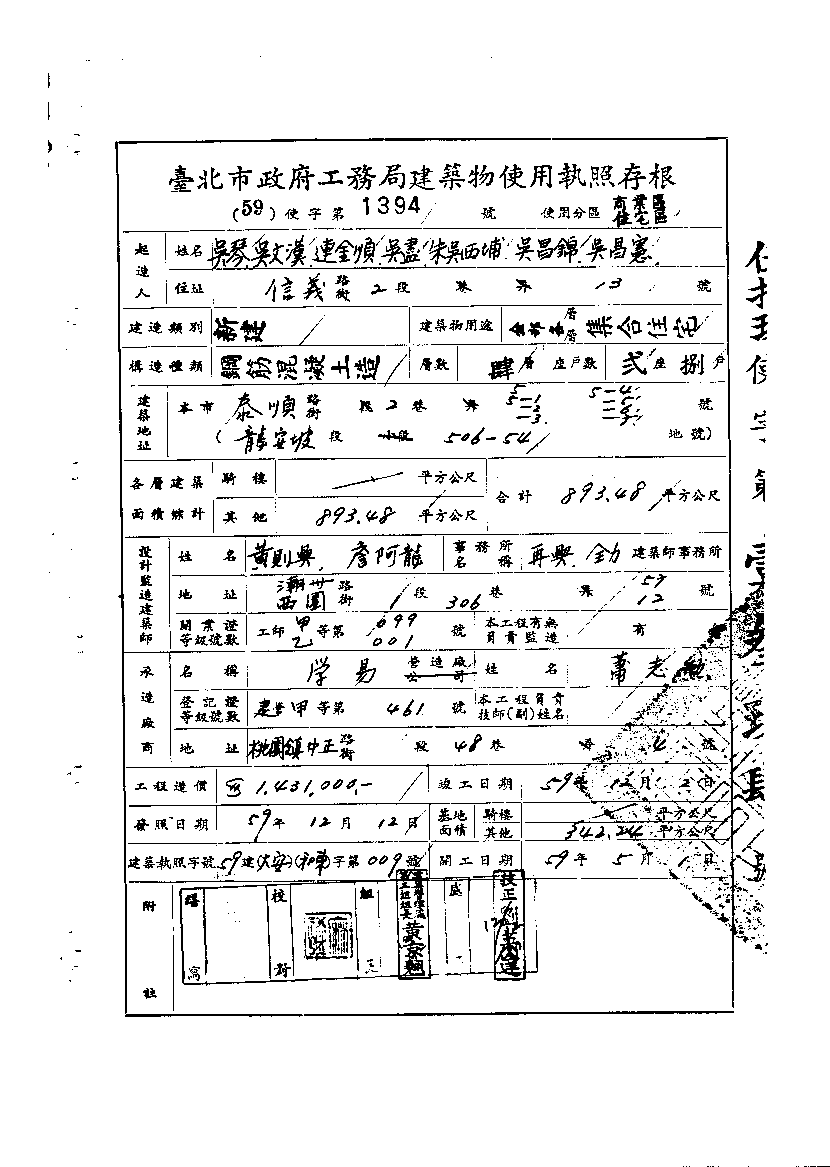 臺北市政府工務局建築物使用執照存根
(59)使字第 1394 號 使用分區 商業區 住宅區
起造人 姓名 吳琴 吳文漢 連金順 吳盡 朱吳西埔 吳昌錦 吳昌憲
住址 信義 路街 2 段 巷 弄 13 號
建造類別 新建 建築物用途 全部各層 集合住宅
構造種類 鋼筋混凝土造 層數 肆層 座戶數 弍座 捌戶
建築地址 本市 泰順 路街 段 2 巷 弄 5 5-1 -2 -3 5-4 號
(龍安坡 段 小段 506-54 地號)
各層建築面積綜計 騎樓 平方公尺
其他 893.48 平方公尺
合計 893.48 平方公尺
設計監造建築師 姓名 黃則興 詹阿龍 事務所名稱 再興 建築師事務所
地址 潮州 西園 路街 1 段 306 巷 弄 57 12 號
開業證等級號數 工師 甲 乙 等第 099 001 號 本工程有無負責監造 有
承造廠商 名稱 学易 營造廠公司 姓名 蕭志
登記證等級號數 甲等第 461 號 本工程負責技師(副)姓名
地址 桃園鎮中正 路街 段 48 巷 弄 4 號
工程造價 1,431,000.- 竣工日期 59年12月2日
發照日期 59年12月12日 基地面積 騎樓 平方公尺
其他 342.24 平方公尺
建築執照字號 59建(大安)字第009號 開工日期 59年5月1日
附註 繕寫 校對 組 黃京翹 技正